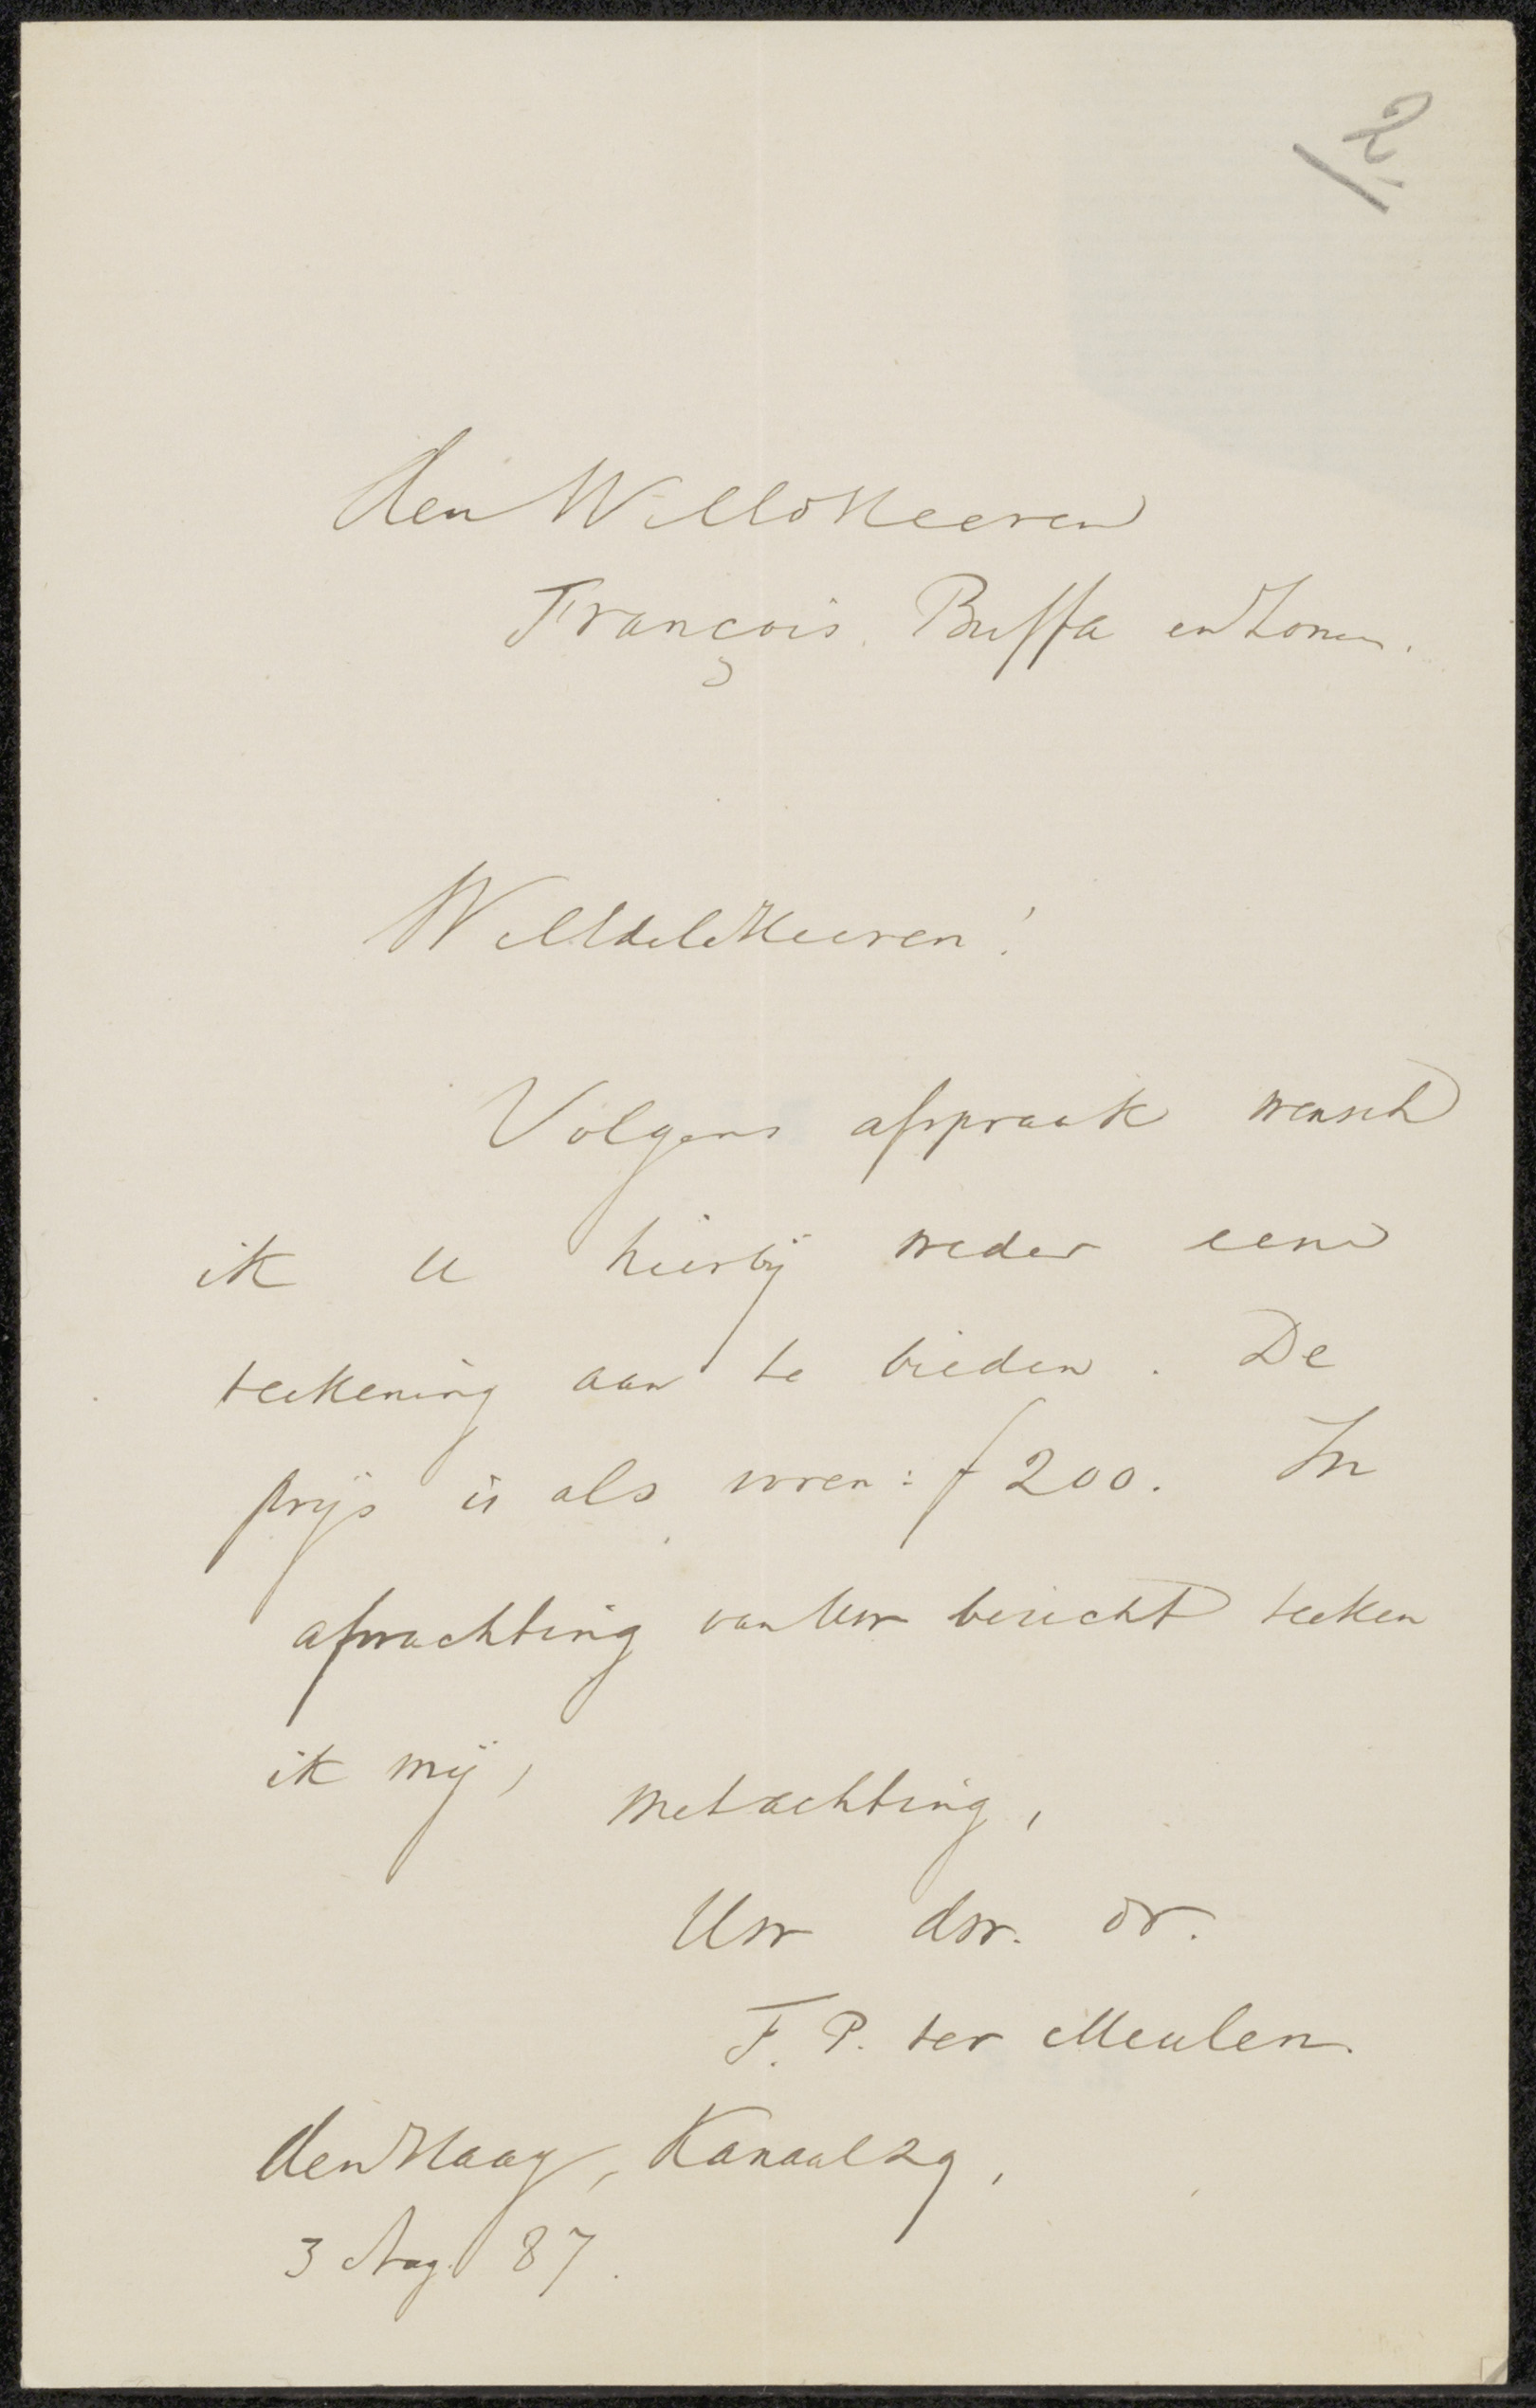 2
den WelEd Heeren
François Buffa en Zonen.
WelEdele Heeren!
Volgens afspraak wensch
ik U hierbij weder eene
teekening aan te bieden. De
prijs is als voren: f 200. In
afwachting van Uw bericht teeken
ik mij,
met achting,
Uw dw. dr.
F. P. ter Meulen.
den Haag, Kanaal 29,
3 Aug. 87.